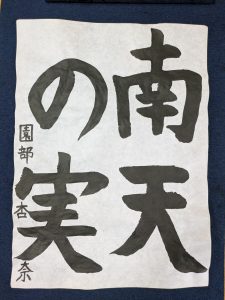 南天
の実
園部杏奈